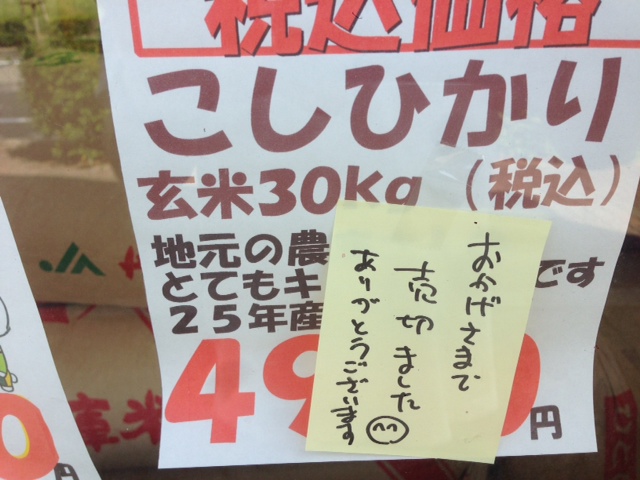 税込価格
こしひかり
玄米30kg (税込)
地元の農
です
とてもキ
25年産
49
0円
おかげさまで
売切ました
ありがとうございます
JA
庫米
0円